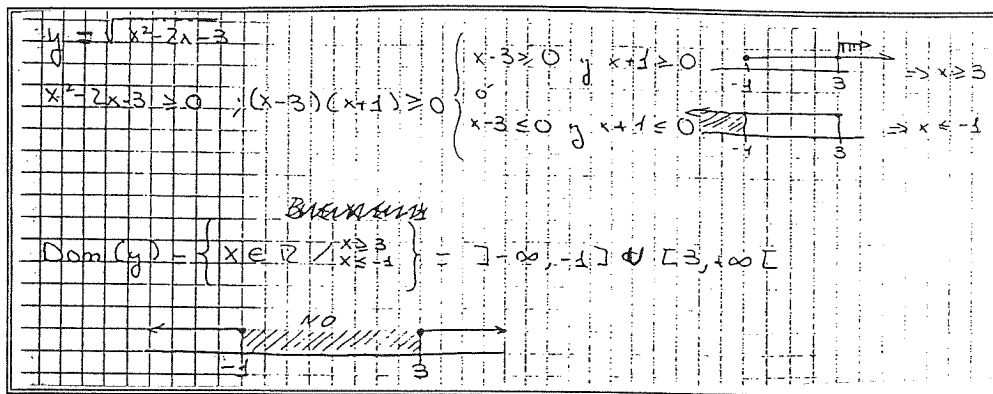 y = √x²-2x-3
x²-2x-3 ≥ 0 ; (x-3)(x+1) ≥ 0
x-3 ≥ 0 y x+1 ≥ 0 -1 3 ⇒ x ≥ 3
ó
x-3 ≤ 0 y x+1 ≤ 0 -1 3 ⇒ x ≤ -1
Dom(y) = { x ∈ R / x ≥ 3 x ≤ -1 } = ]-∞, -1] ∪ [3, +∞[
NO
-1 3